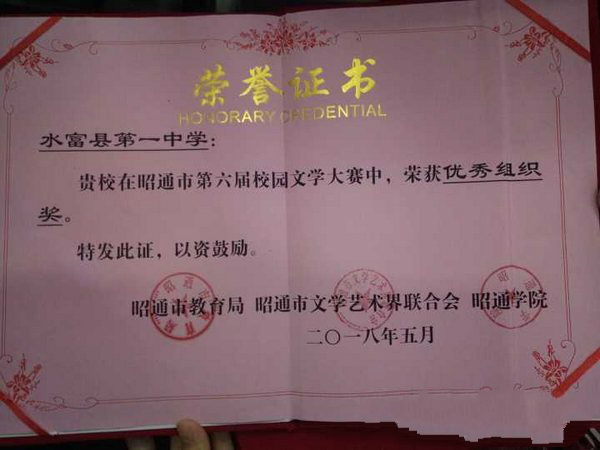 荣誉证书
HONORARY CREDENTIAL
水富县第一中学：
贵校在昭通市第六届校园文学大赛中，荣获优秀组织
奖。
特发此证，以资鼓励。
昭通市教育局 昭通市文学艺术界联合会 昭通学院
二〇一八年五月